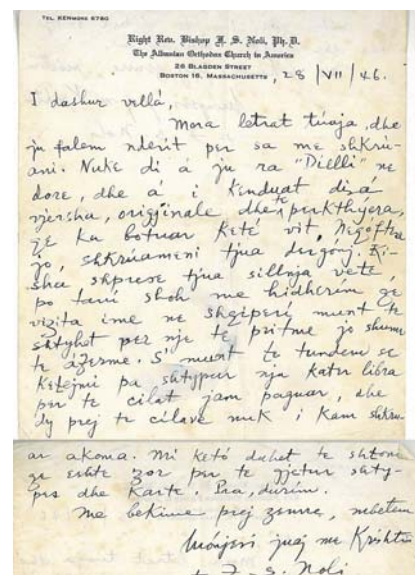 TEL. KENMORE 6780
Right Rev. Bishop F. S. Noli, Ph.D.
The Albanian Orthodox Church in America
26 BLAGDEN STREET
BOSTON 16, MASSACHUSETTS, 28/VII/46.
I dashur vëllá,
Mora letrat túaja, dhe
ju falem nderit per sa me shkrú-
ani. Nuke di á ju ra "Dielli" ne
dore, dhe á i kenduat dizá
vjersha, origjinale dhe te perkthyera,
qe ka botuar keté vit. Neqoftse
jo, shkrúameni tjua dergonj. Ki-
sha shprese tjua sillnja veté
po tani shoh me hidherim qe
vizita ime ne Shqiperi munt te
shtyhet per nje te pritme jo shume
te aferme. S'munt te tundem se
ketejmi pa shtypur nja kater libra
per te cilat jam paguar, dhe
dy prej te cilave nuk i kam shkru-
ar akoma. Mi ketó duhet te shtoni
qe eshte zor per te gjetur shty-
pes dhe karte. Pra, durim.
Me bekime prej zemre, mbetem
juaj me Krishtin
+ F. S. Noli